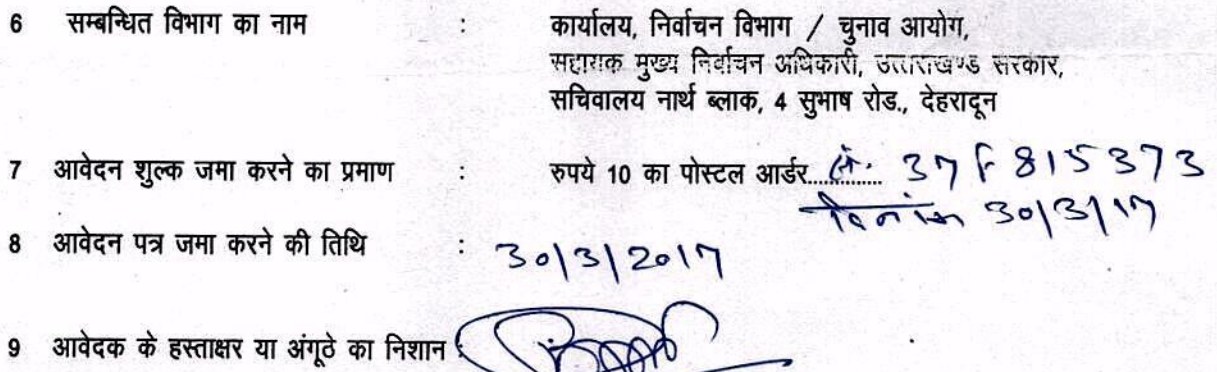 6 सम्बन्धित विभाग का नाम : कार्यालय, निर्वाचन विभाग / चुनाव आयोग,
सहायक मुख्य निर्वाचन अधिकारी, उत्तराखण्ड सरकार,
सचिवालय नार्थ ब्लाक, 4 सुभाष रोड., देहरादून
7 आवेदन शुल्क जमा करने का प्रमाण : रुपये 10 का पोस्टल आर्डर............. सं. 37F 815373
दिनांक 30/3/17
8 आवेदन पत्र जमा करने की तिथि : 30/3/2017
9 आवेदक के हस्ताक्षर या अंगूठे का निशान :